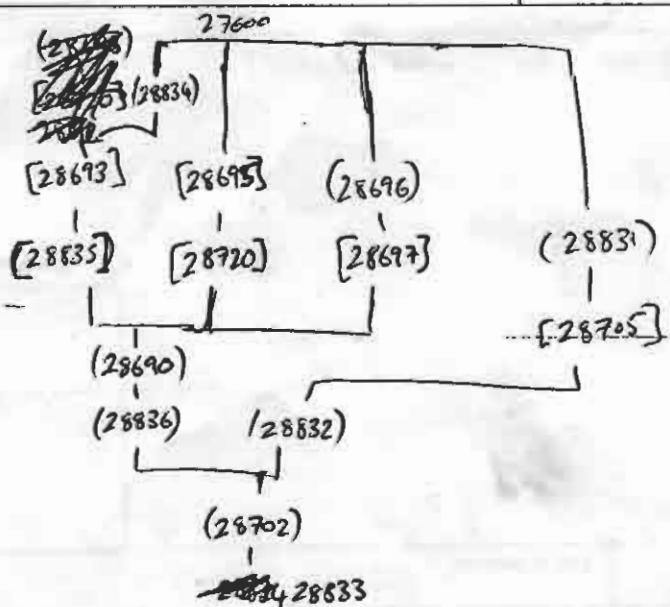 27600
(28834)
[28693] [28695] (28696)
(28831)
[28835] [28720] [28697]
[28705]
(28690)
(28836) (28832)
(28702)
28833